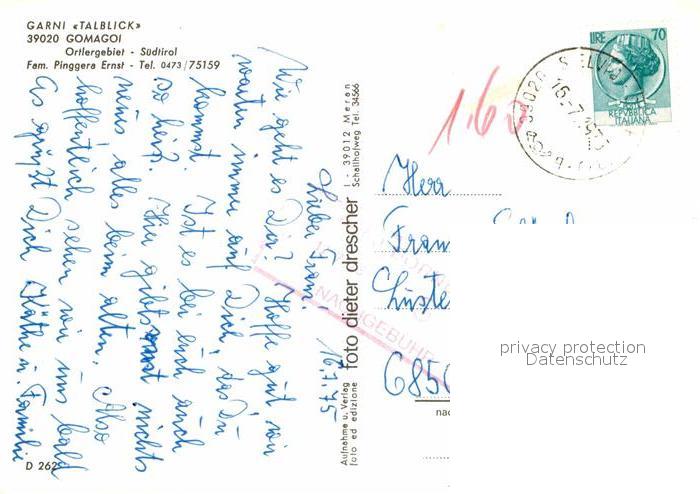 GARNI «TALBLICK»
39020 GOMAGOI
Ortlergebiet - Südtirol
Fam. Pinggera Ernst - Tel. 0473/75159
16.7.75
Lieber Franz.
Wie geht es Dir? Hoffe gut wir
warten immer auf Dich, das Du
kommst. Ist es bei euch auch
so heiß. Hier gibts sonst nichts
neues alles beim alten. Also
hoffentlich sehen wir uns bald
Es grüßt Dich Käthe u. Familie
D 262
Aufnahme u. Verlag
foto ed edizione
foto dieter drescher
I - 39012 Meran
Schallhofweg Tel. 34566
NACHGEBÜHR
1.60
LIRE 70
REPVBBLICA
ITALIANA
39020 STELVIO
16.-7.
Herr
Fran
Luste
685
nac
privacy protection
Datenschutz